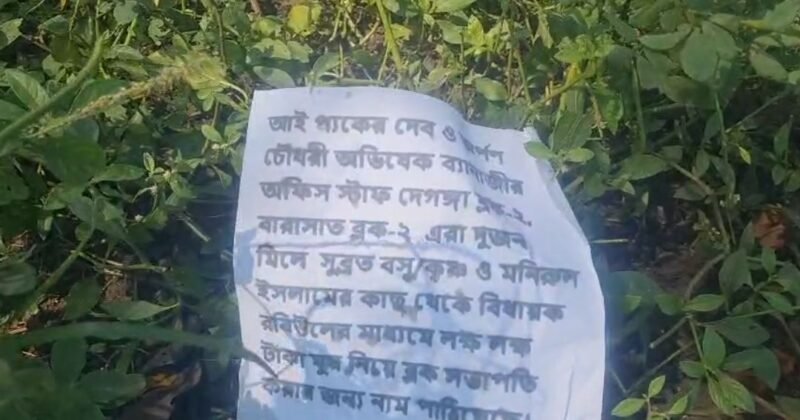 আই প্যাকের দেব ও অর্পণ
চৌধুরী অভিষেক ব্যানার্জীর
অফিস স্টাফ দেগঙ্গা ব্লক-২,
বারাসাত ব্লক-২ এরা দুজন
মিলে সুব্রত বসু/কৃষ্ণ ও মনিরুল
ইসলামের কাছ থেকে বিধায়ক
রবিউলের মাধ্যমে লক্ষ লক্ষ
টাকা ঘুষ নিয়ে ব্লক সভাপতি
করার জন্য নাম পাঠিয়েছে।